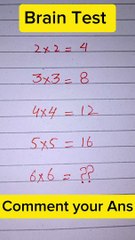 Brain Test
2×2 = 4
3×3 = 8
4×4 = 12
5×5 = 16
6×6 = ??
Comment your Ans